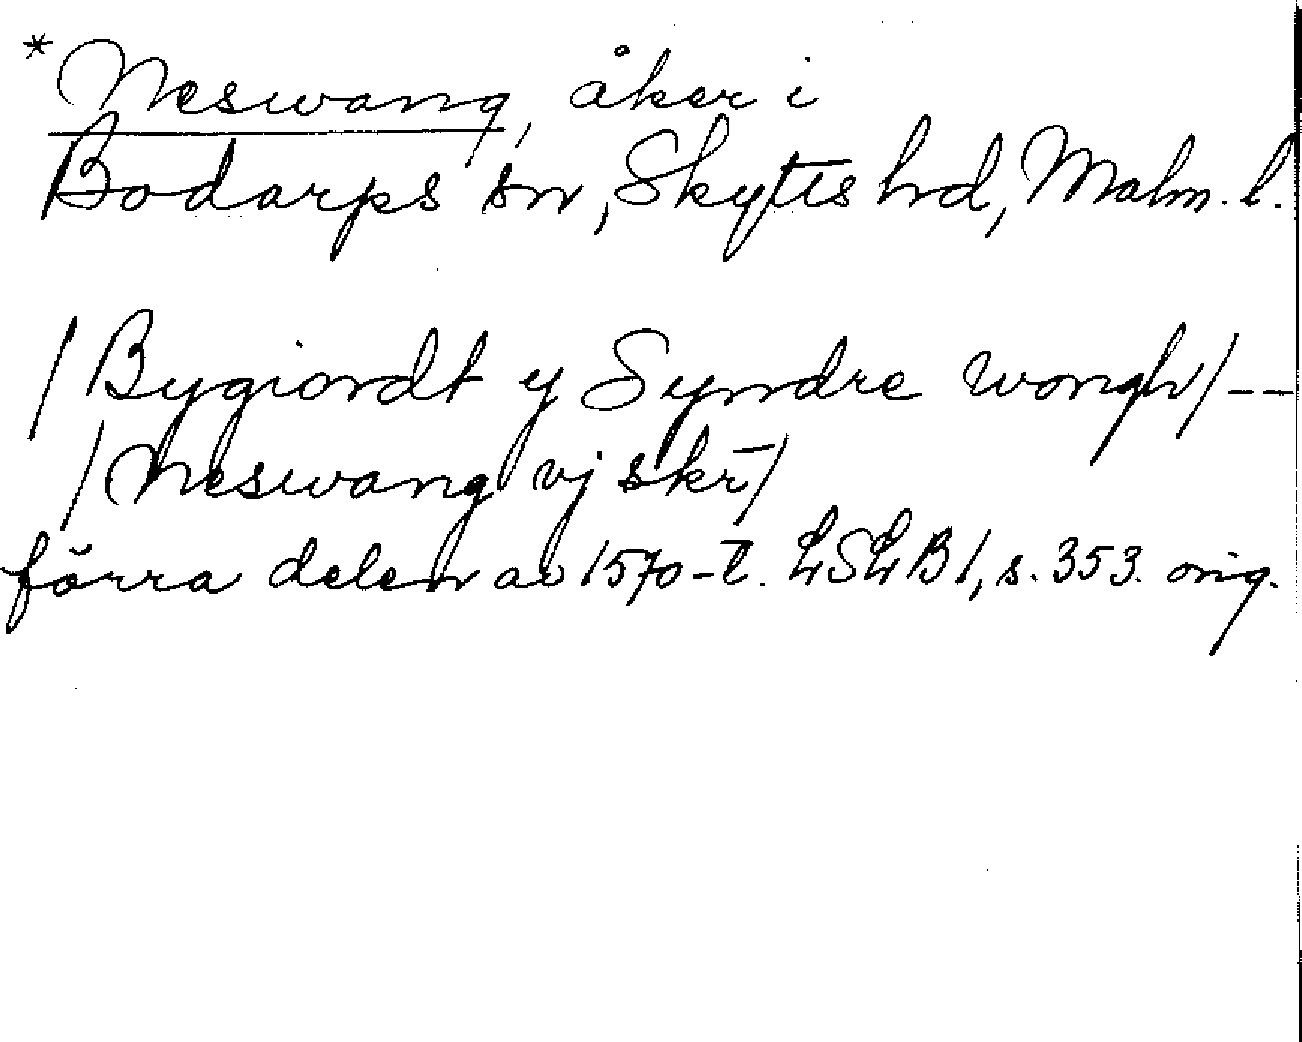 *Neswang, åker i
Bodarps sn, Skytts hd, Malm. l.
/Bygiordt y Syndre wongh/--
/Neswang vj skr̄/
förra delen av 1570-t. LSLB1, s. 353. orig.